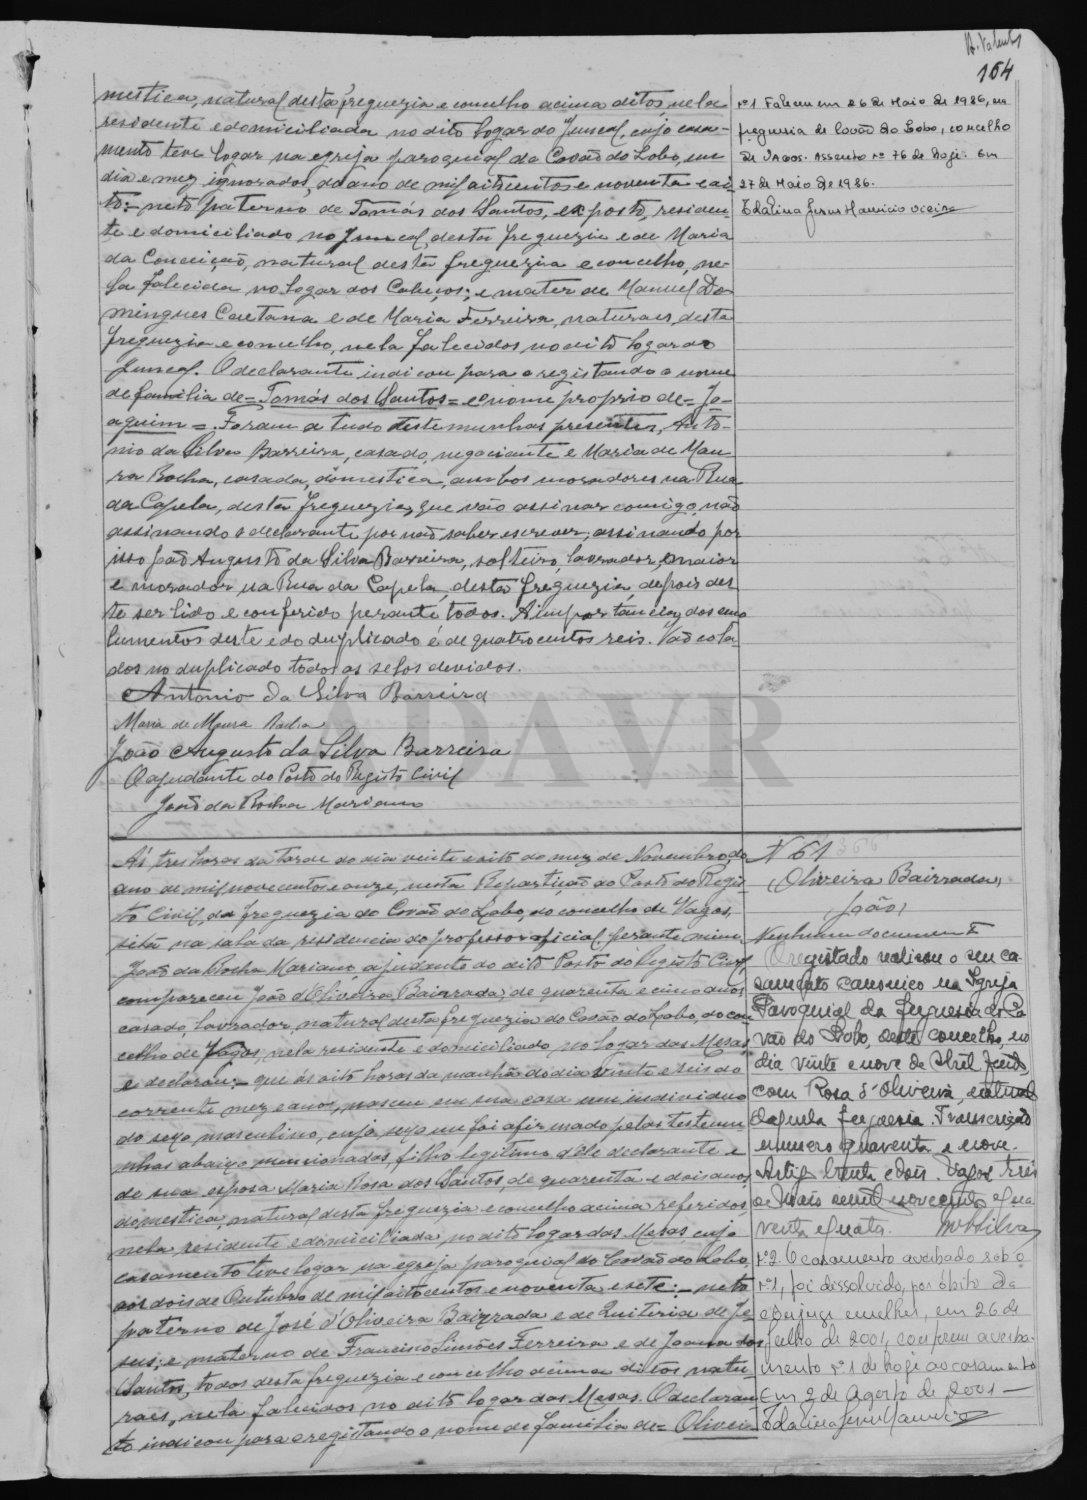 A. Valente
164
mestica, natural desta freguezia e concelho acima ditos nela
residente e domiciliada no dito logar do Juncal, cujo casa-
mento teve logar na egreja paroquial do Covão do Lobo, em
dia e mez ignorados, do ano de mil oitocentos e noventa e oi-
to:- neto paterno de Tomás dos Santos, exposto, residen-
te e domiciliado no Juncal, desta freguezia e de Maria
da Conceição, natural desta freguezia e concelho, ne-
la falecida no logar dos Cabeços; e mater de Manuel Do-
mingues Caetana e de Maria Ferreira, naturaes desta
freguezia e concelho, nela falecidos no dito logar do
Juncal. O declarante indicou para o registando o nome
de familia de = Tomás dos Santos = e o nome proprio de = Jo-
aquim =. Foram a tudo testemunhas presentes, Antó-
nio da Silva Barreira, casado, negociante e Maria de Mou-
ra Rocha, casada, domestica, ambos moradores na Rua
da Capela, desta freguezia, que vão assinar comigo, não
assinando o declarante por não saber escrever, assinando por
isso João Augusto da Silva Barreira, solteiro, lavrador, maior
e morador na Rua da Capela, desta freguezia, depois des-
te ser lido e conferido perante todos. A importancia dos emo-
lumentos deste e do duplicado é de quatrocentos reis. Vão cola-
dos no duplicado todos os selos devidos.
Antonio da Silva Barreira
Maria de Moura Rocha
João Augusto da Silva Barreira
O ajudante do Posto do Registo Civil
João da Rocha Mariano
nº1 Faleceu em 26 de Maio de 1986, na
freguesia de Covão do Lobo, concelho
de Vagos. Assento nº 76 de hoje. Em
27 de Maio de 1986.
Edalina Jesus Mauricio Vieira
ADAVR
Ás tres horas da tarde do dia vinte e oito do mez de Novembro, do
ano de mil novecentos e onze, nesta Repartição do Posto do Regis-
to Civil, da freguezia do Covão do Lobo, do concelho de Vagos,
sita na sala da residencia do professor oficial, perante mim
João da Rocha Mariano, ajudante do dito Posto do Registo Civil
compareceu João d'Oliveira Bairrada, de quarenta e cinco anos
casado, lavrador, natural desta freguezia do Covão do Lobo, do con-
celho de Vagos, nela residente e domiciliado no logar das Mesas,
e declarou:- que ás oito horas da manhã do dia vinte e seis do
corrente mez e ano, nasceu em sua casa um individuo
do sexo masculino, cujo sexo me foi afirmado pelas testemu-
nhas abaixo mencionadas, filho legitimo d'ele declarante e
de sua esposa Maria Rosa dos Santos, de quarenta e dois anos,
domestica, natural desta freguezia e concelho acima referidos,
nela residente e domiciliada, no dito logar das Mesas, cujo
casamento teve logar na egreja paroquial do Covão do Lobo,
aos dois de Outubro de mil oitocentos e noventa e sete:- neto
paterno de José d'Oliveira Bairrada e de Quiteria de Je-
sus; e materno de Francisco Simões Ferreira e de Joana dos
Santos, todos desta freguezia e concelho acima ditos natu-
raes, nela falecidos no dito logar das Mesas. O declaran-
te indicou para o registando o nome de familia de = Olivei-
Nº 61 366
Oliveira Bairrada,
João,
Nenhum documento
O registado realisou o seu ca-
samento canonico na Igreja
Paroquial da freguesia do Co-
vão do Lobo, deste concelho, no
dia vinte e nove de Abril findo,
com Rosa d'Oliveira, natural
daquela freguesia. Transcrição
numero quarenta e nove.
Artigo trinta e dois. Vagos, três
de Maio de mil novecentos e qua-
renta e quatro.
nº2. O casamento averbado sob o
nº1, foi dissolvido, por óbito da
conjuge mulher, em 26 de
Julho de 2001, conforme averba-
mento nº 1 de hoje ao casamento
Em 2 de Agosto de 2001 —
Edalina Jesus Mauricio